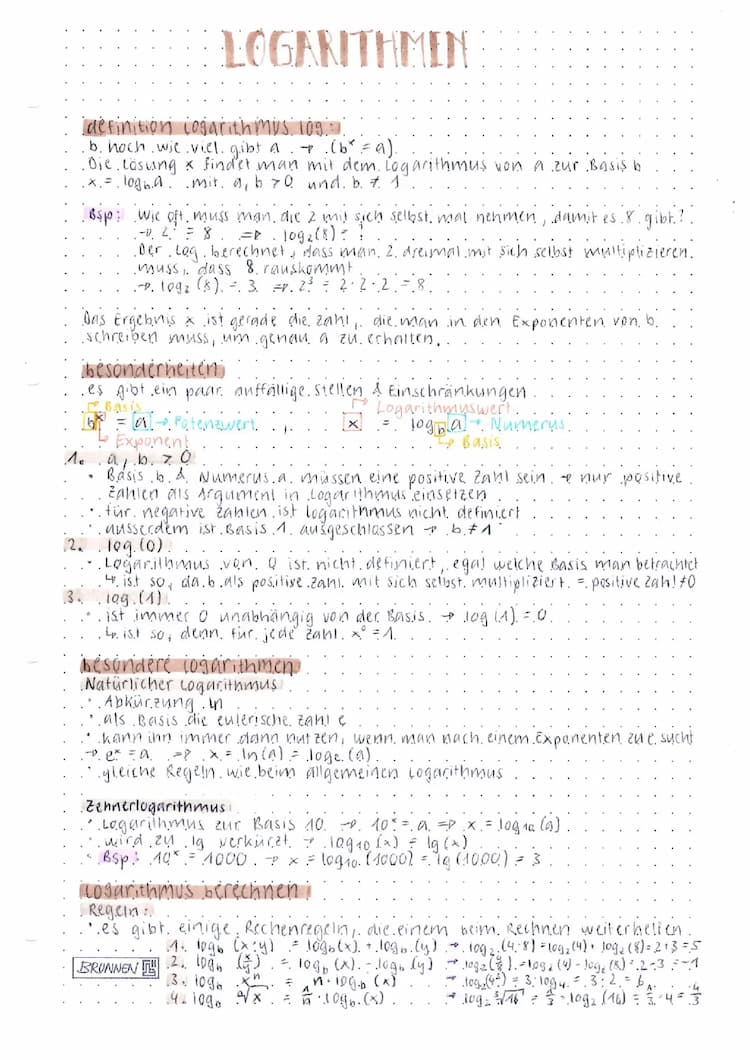 LOGARITHMEN
definition logarithmus log:
b hoch wie viel gibt a → (bˣ = a)
Die Lösung x findet man mit dem Logarithmus von a zur Basis b
x = log_b a mit a, b > 0 und b ≠ 1
Bsp: Wie oft muss man die 2 mit sich selbst mal nehmen, damit es 8 gibt?
→ 2^? = 8 ⇒ log₂(8) = ?
Der Log berechnet, dass man 2 dreimal mit sich selbst multiplizieren
muss, dass 8 rauskommt
→ log₂(8) = 3 ⇒ 2³ = 2·2·2 = 8
Das Ergebnis x ist gerade die Zahl, die man in den Exponenten von b
schreiben muss, um genau a zu erhalten.
besonderheiten
es gibt ein paar auffällige Stellen & Einschränkungen
Basis Logarithmuswert
bˣ = a → Potenzwert , x = log_b a → Numerus
Exponent Basis
1. a, b > 0
• Basis b & Numerus a müssen eine positive Zahl sein → nur positive
Zahlen als Argument in Logarithmus einsetzen
• für negative Zahlen ist logarithmus nicht definiert
• ausserdem ist Basis 1 ausgeschlossen → b ≠ 1
2. log(0)
• Logarithmus von 0 ist nicht definiert, egal welche Basis man betrachtet
↳ ist so, da b als positive Zahl mit sich selbst multipliziert = positive Zahl ≠ 0
3. log(1)
• ist immer 0 unabhängig von der Basis → log(1) = 0
↳ ist so, denn für jede Zahl x⁰ = 1
besondere logarithmen
Natürlicher Logarithmus
• Abkürzung ln
• als Basis die eulerische Zahl e
• kann ihn immer dann nutzen, wenn man nach einem Exponenten zu e sucht
→ eˣ = a ⇒ x = ln(a) = log_e(a)
• gleiche Regeln wie beim allgemeinen Logarithmus
Zehnerlogarithmus
• Logarithmus zur Basis 10 → 10ˣ = a ⇒ x = log₁₀(a)
• wird zu lg verkürzt → log₁₀(x) = lg(x)
• Bsp: 10ˣ = 1000 → x = log₁₀(1000) = lg(1000) = 3
logarithmus berechnen
Regeln:
• es gibt einige Rechenregeln, die einem beim Rechnen weiterhelfen
1. log_b (x·y) = log_b(x) + log_b(y) → log₂(4·8) = log₂(4) + log₂(8) = 2+3 = 5
2. log_b (x/y) = log_b(x) - log_b(y) → log₂(4/8) = log₂(4) - log₂(8) = 2-3 = -1
BRUNNEN
3. log_b xⁿ = n · log_b(x) → log₂(4³) = 3·log₂4 = 3·2 = 6
4. log_b ⁿ√x = 1/n · log_b(x) → log₂ ³√16 = 1/3 · log₂(16) = 1/3 · 4 = 4/3